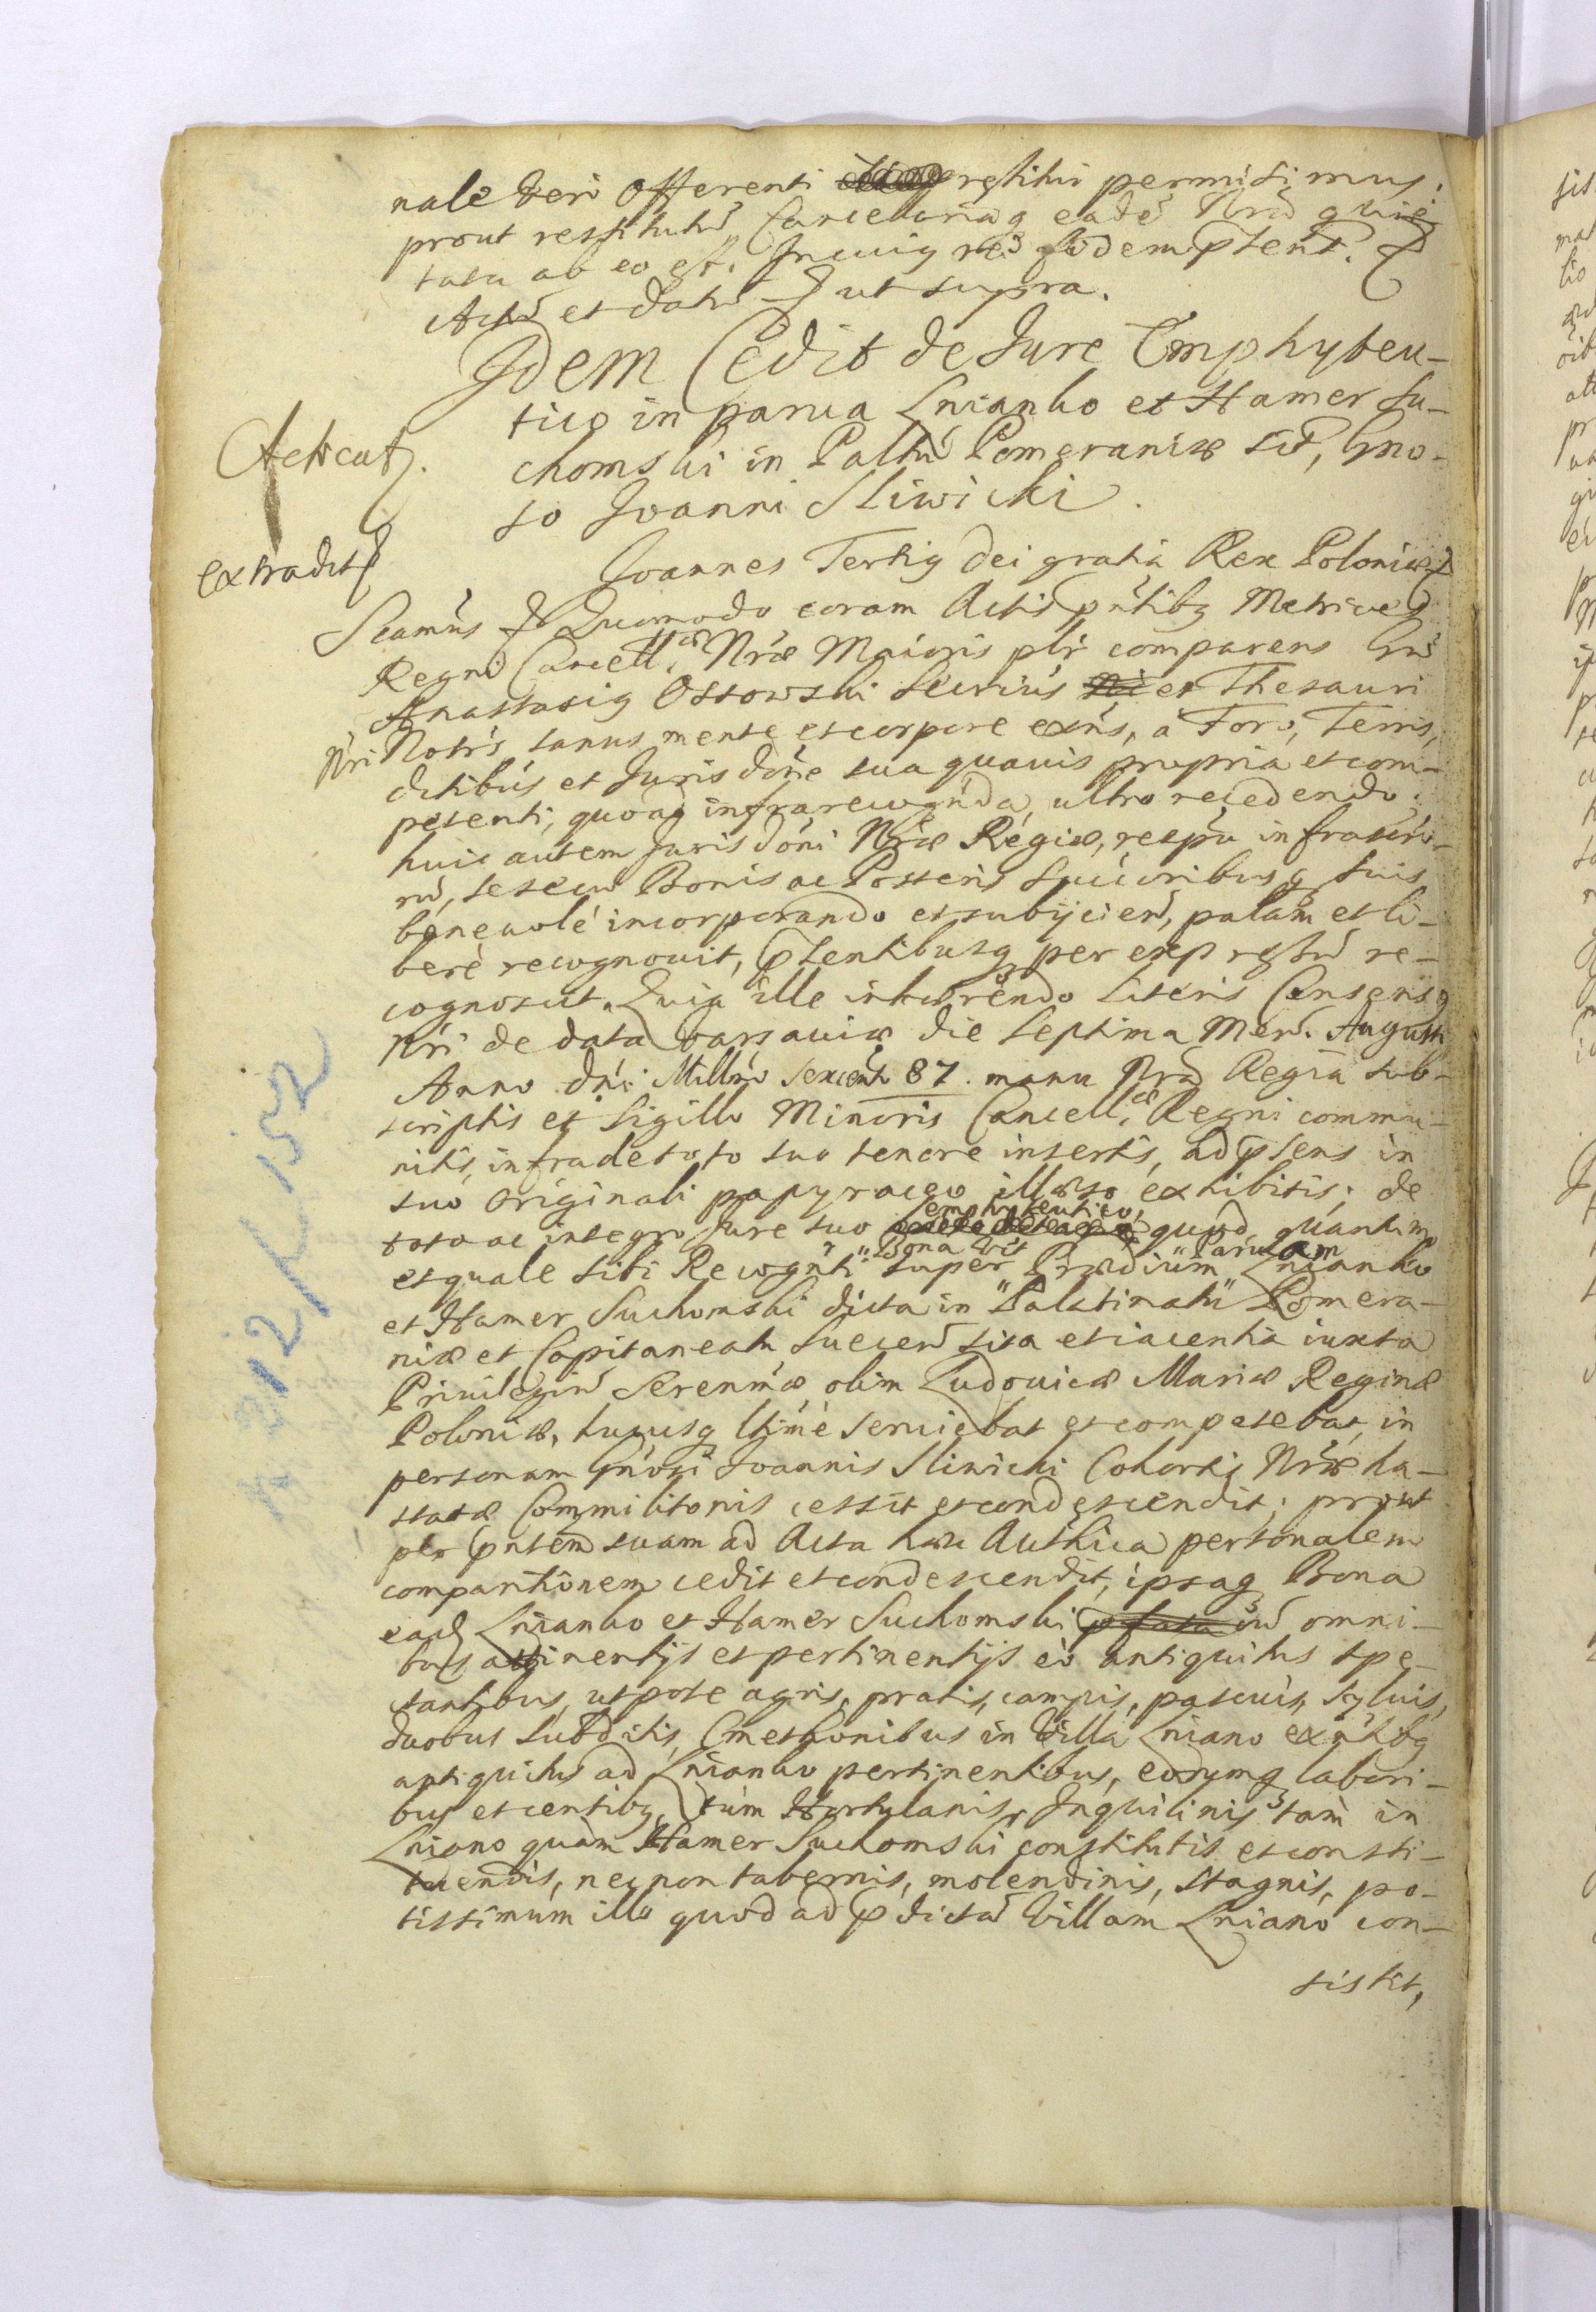 nale veri Offerenti restitui permisimus.
prout restitutũ, Cancellariaq eadẽ Nrã quie
tata ab eo est. In cuiq rei fidem pñtent. &
Actũ et datũ & ut supra.
Idem Cedit de Jure Emphyteu-
tico in parva Lnianko et Hamer Su-
choms ki in Palttu Pomeraniæ sit, Gno-
so Joanni Sliwicki.
Acticat.
extradit
Joannes Tertiq Dei gratia Rex Poloniæ &
Seamus & Quomodo coram Actis pñtibq Metrices
Regni Cancell.æ Nræ Maioris plr comparens Gñs
Anastasiq Ossowski Secrius et Thesauri
Nri Notrs, sanus mente et corpore exns, a Foro, Terris,
dctibus et Jurisdõne sua quavis propria et com-
petenti, quoad infra recognda, ultro recedendo.
huic autem Jurisdoni Nræ Regiæ, respu infrascro-
rũ, sesecũ Bonis ac Posteris Succoribusq suis
benevole incorporando et subijciend, palam et li-
bere recognovit, pstentibusq per expressũ re-
cognoscit. Quia ille inhærendo Literis Consensq
Nri de data Varsaviæ die Septima Mens. Augusti
Anno dni Millmo Sexcento 87. manu Nra Regia sub-
scriptis et Sigillo Minoris Cancell.æ Regni commu-
nitis, infra de toto suo tenore insertis, ad pstens in
suo originali papyraceo illæso exhibitis; de
toto ac integro Jure suo emphyteutico, quod, quantum
et quale sibi Recognti super Bona vit Prædium Parvam Lnianko
et Hamer Suchomski dicta in Palatinatu Pomera-
niæ et Capitaneatu Suecen sita et iacentia iuxta
Privilegiũ Serenmæ olim Ludovicæ Mariæ Reginæ
Poloniæ, hucusq ltime serviebat et competebat, in
personam Gnosi Joannis Sliwicki Cohortis Nræ ha-
statæ Commilitonis cessit et condescendit; prout
plr pntem suam ad Acta hæc Authica personalem
comparitionem cedit et condescendit, ipsaq Bona
eadẽ Lnianko et Hamer Suchomski cũ omni-
bus attinentijs et pertinentijs eo antiquitus spe-
ctantibus, utpote agris, pratis, campis, pascuis, sylvis,
duobus Subditis, Cmethonibus in Villa Lniano exntibq
antiquitus ad Lnianko pertinentibus, eorumq labori-
bus et censibq, tum Hortulanis, Inquilinis tam in
Lniano quam Hamer Suchomski constitutis et consti-
tuendis, nec non tabernis, molendinis, stagnis, po-
tissimum illo quod ad pdictã Villam Lniano con-
sistit,